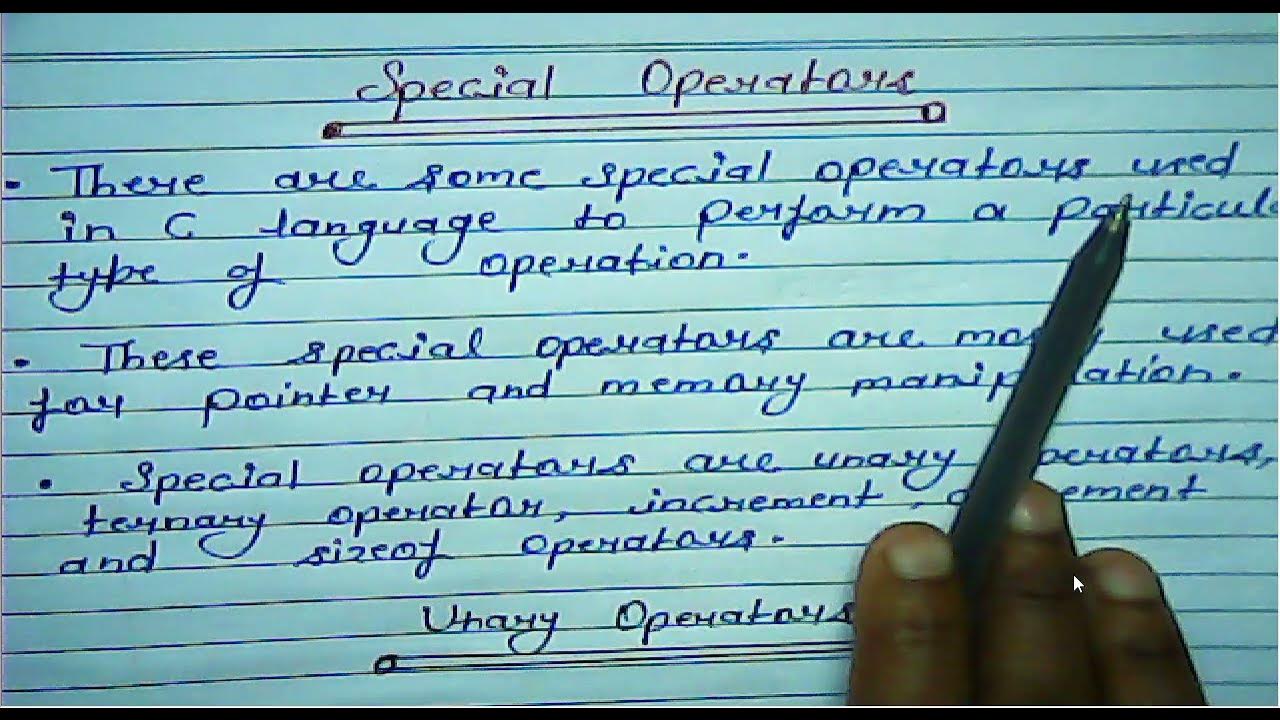 Special Operators
• There are some special operators used
in C language to perform a particul
type of operation.
• These special operators are used
for pointer and memory
• Special operators are unary
ternary operator, increment,
and sizeof operators.
Unary Operators